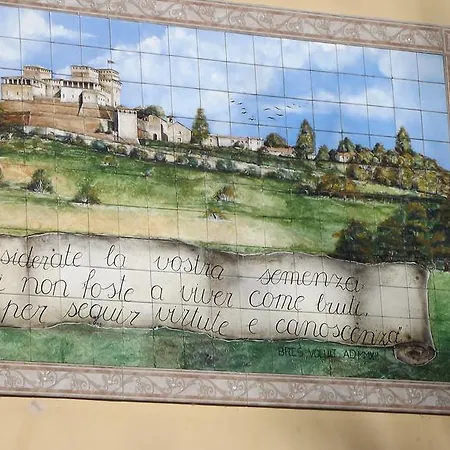 siderate la vostra semenza
non foste a viver come bruti,
per seguir virtute e canoscenza"